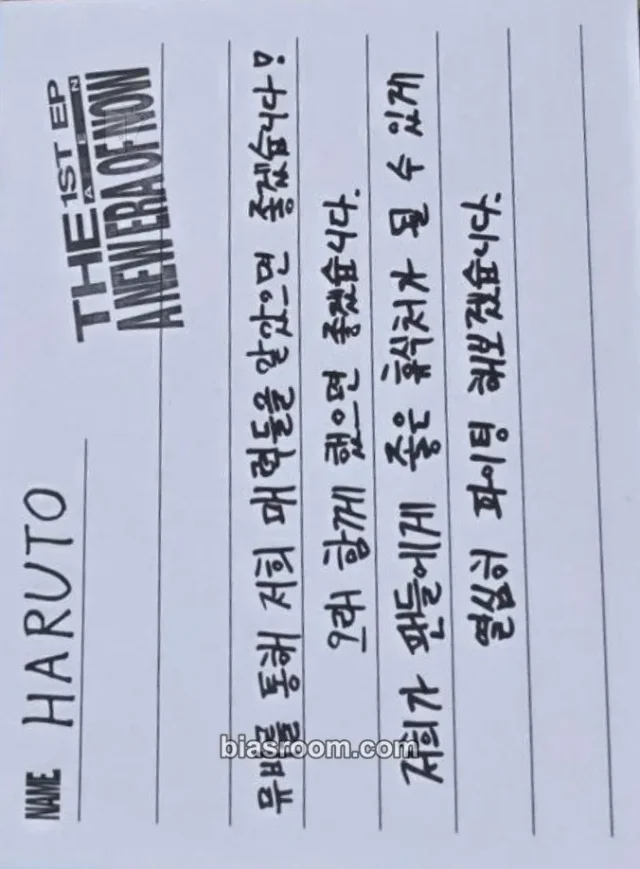 THE 1ST EP
A NEW ERA OF NOW
NAME HARUTO
뮤비를 통해 저희 매력들을 알았으면 좋겠습니다!
오래 함께 했으면 좋겠습니다.
저희가 팬들에게 좋은 휴식처가 될 수 있게
열심히 파이팅 해보겠습니다.
biasroom.com